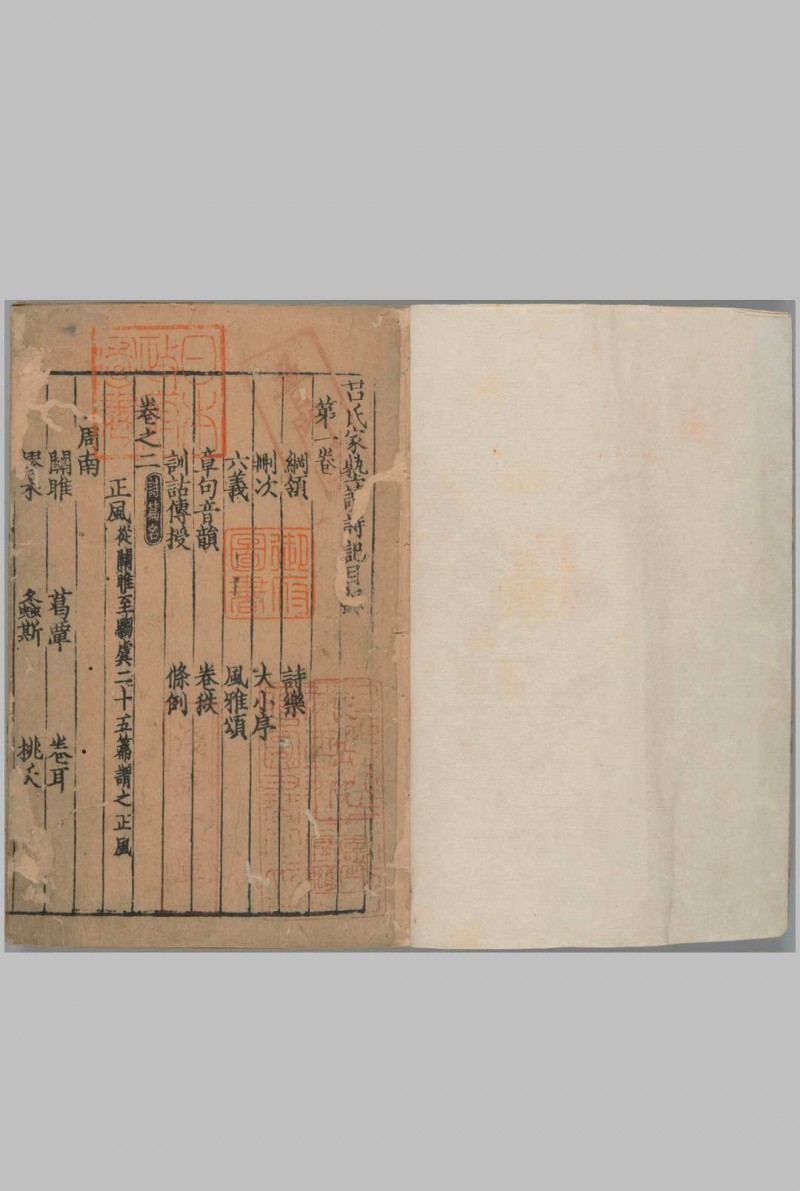 呂氏家塾讀詩記目錄
第一卷
綱領 詩樂
刪次 大小序
六義 風雅頌
章句音韻 卷秩
訓詁傳授 條例
卷之二 詩篇名
正風 從關雎至騶虞二十五篇謂之正風
周南
關雎 葛蕈 卷耳
樛木 螽斯 桃夭
御府圖書